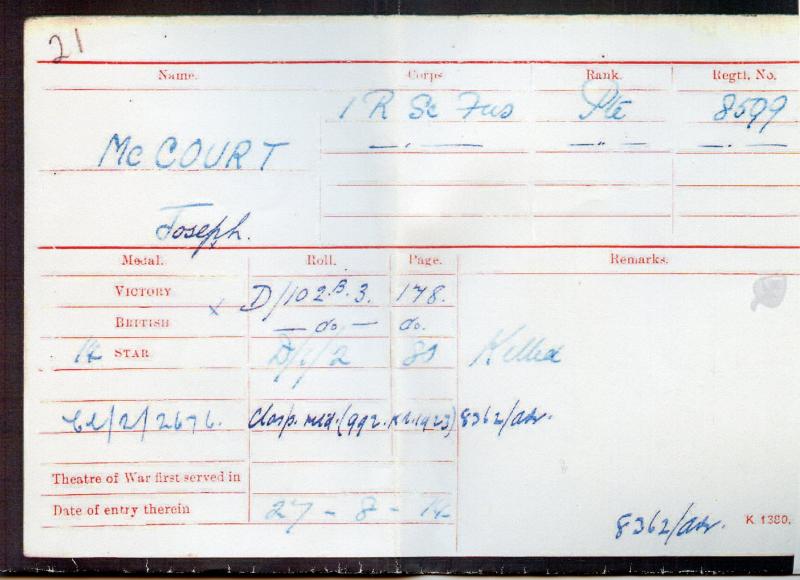 21
Name. Corps Rank. Regtl. No.
1 R Sc Fus Pte 8599
McCOURT
Joseph.
Medal. Roll. Page. Remarks.
VICTORY x D/102.B.3. 178.
BRITISH — do — do.
14 STAR D/1/2 80 Killed
Cl/2/2676. Clasp. med. (992. K.R. 1923) 8362/Adr.
Theatre of War first served in
Date of entry therein 27 - 8 - 14
8362/Adr. K 1380.